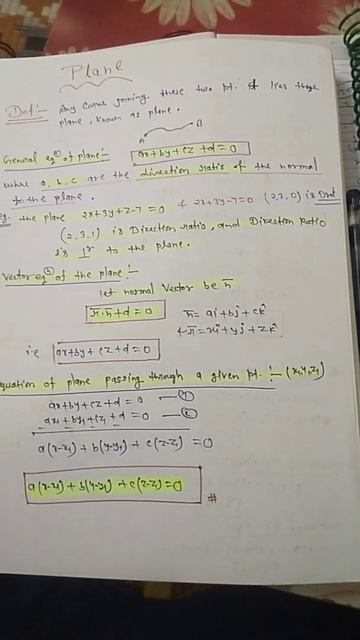 Plane
Def:- Any curve joining these two pt. lies
plane, known as plane.
A B
General eqⁿ of plane:- ax+by+cz+d=0
where a, b, c are the direction ratio of the normal
to the plane.
eg. the plane 2x+3y+z-7=0 & 2x+3y-7=0 (2,3,0) is
(2,3,1) is Direction ratio, and Direction Ratio
is ⊥r to the plane.
Vector eqⁿ of the plane:-
let normal Vector be n̄
r̄·n̄+d=0 n̄=ai+bj+ck̂
& r̄=xî+yĵ+zk̂
i.e ax+by+cz+d=0
Equation of plane passing through a given pt.:- (x₁,y₁,z₁)
ax+by+cz+d=0 —①
ax₁+by₁+cz₁+d=0 —②
a(x-x₁)+b(y-y₁)+c(z-z₁)=0
a(x-x₁)+b(y-y₁)+c(z-z₁)=0 #